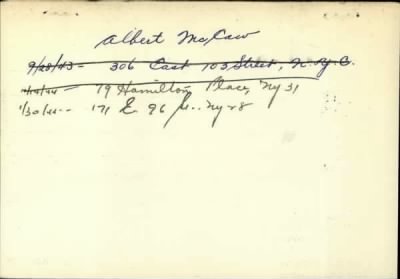 Albert McCaw
9/28/43 - 306 East 103 Street, N.Y.C.
79 Hamilton Place, Ny 31
1/30/44 -- 171 E. 96 St. Ny 28